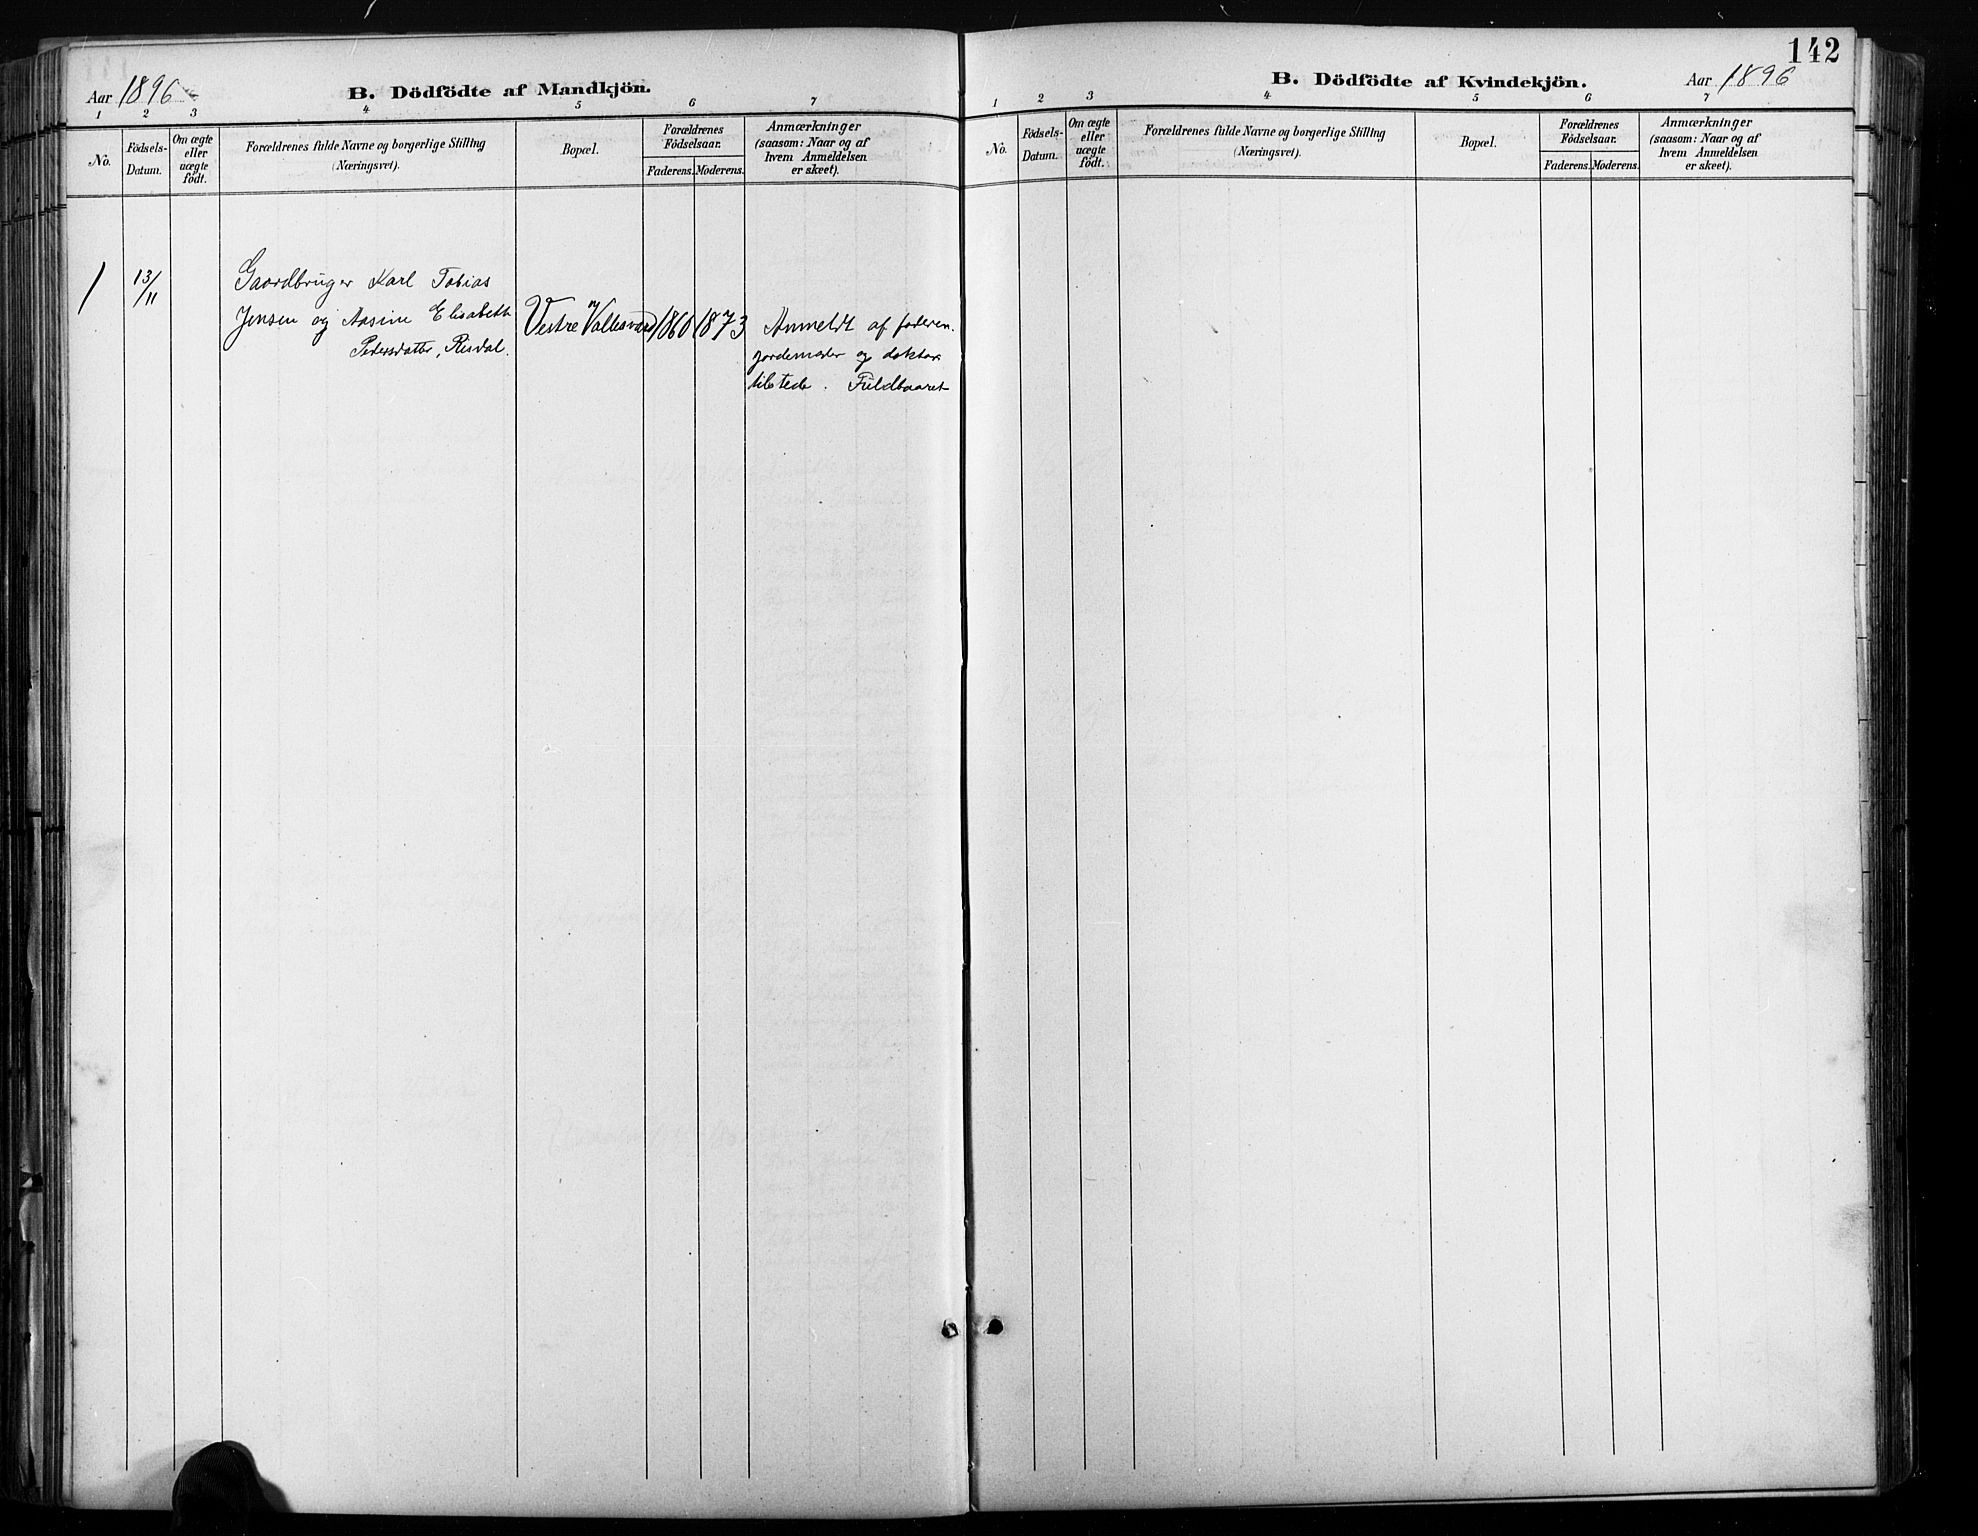 Aar 1896
B. Dödfödte af Mandkjön.
1 2 3 4 5 6 7
No.
Födsels-
Datum.
Om ægte
eller
uægte
født.
Forældrenes fulde Navne og borgerlige Stilling
(Næringsvei).
Bopæl.
Forældrenes
Födselsaar.
Faderens. Moderens.
Anmærkninger
(saasom: Naar og af
hvem Anmeldelsen
er skeet).
1
13/11
Gaardbruger Karl Tobias
Jensen og Aasine Elisabeth
Pedersdatter, Risdal.
Vestre
1860
1873
Anmeldt af faderen.
jordemoder og doktor
tilstede. Fuldbaaret
142
B. Dödfödte af Kvindekjön.
Aar 1896
1 2 3 4 5 6 7
No.
Födsels-
Datum.
Om ægte
eller
uægte
födt.
Forældrenes fulde Navne og borgerlige Stilling
(Næringsvei).
Bopæl.
Forældrenes
Födselsaar.
Faderens. Moderens.
Anmærkninger
(saasom: Naar og af
hvem Anmeldelsen
er skeet).